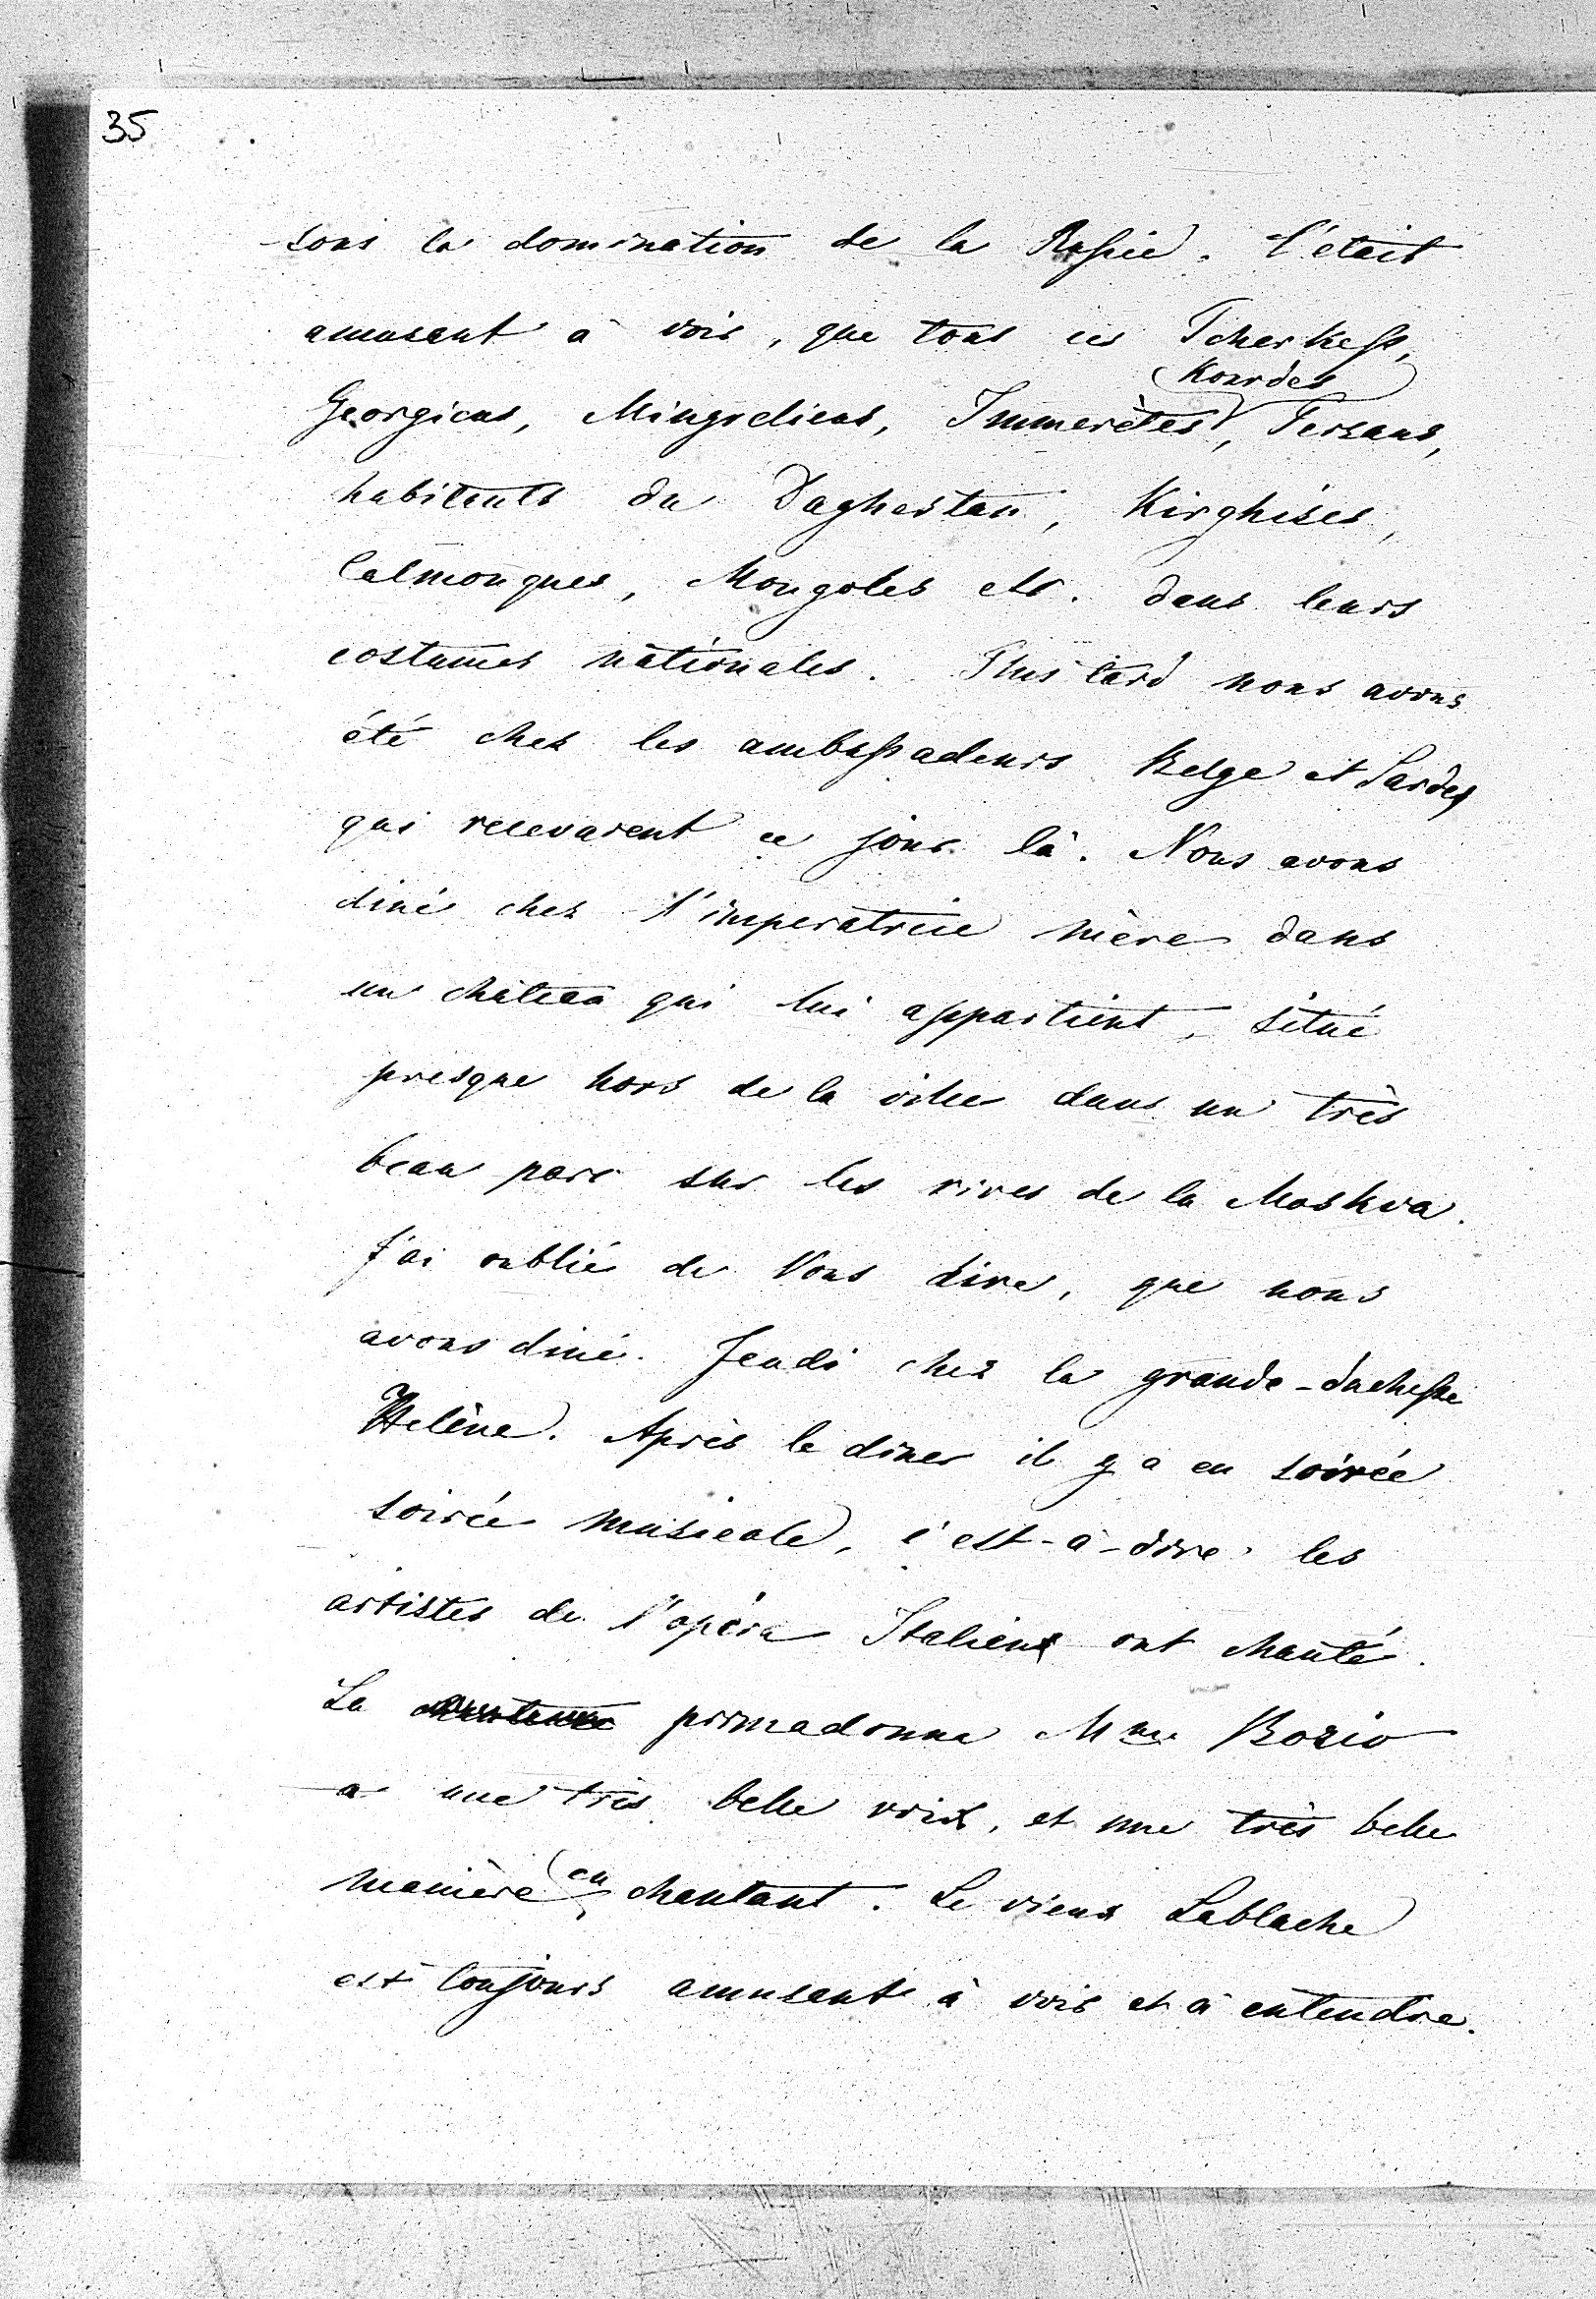 35
sous la domination de la Russie. C'était
amusant à voir, que tous ces Tcherkess,
Kourdes
Georgiens, Mingreliens, Immerètes, Persans,
habitants du Daghestan, Kirghises,
Calmouques, Mongoles etc. dans leurs
costumes nationales. Plus tard nous avons
été chez les ambassadeurs Belge et Sardes
qui recevaient ce jour là. Nous avons
diné chez l'imperatrice mère dans
un château qui lui appartient, situé
presque hors de la ville dans un très
beau parc sur les rives de la Moskva.
J'ai oublié de Vous dire, que nous
avons diné Jeudi chez la grande-duchesse
Helène. Après le diner il y a eu soirée
soirée musicale, c'est-à-dire les
artistes de l'opéra Italiens ont chanté.
La primadonna Mme Bozio
a une très belle voix, et une très belle
manière en chantant. Le vieux Lablache
est toujours amusant à voir et à entendre.